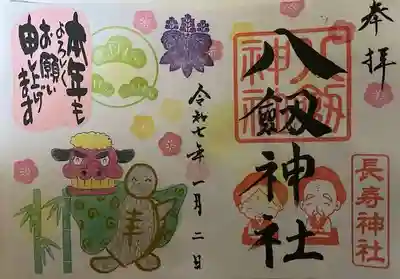 奉拝
八剱神社
八剱
神社
長寿神社
令和七年一月二日
本年も
よろしく
お願い
申し上げ
ます
寿